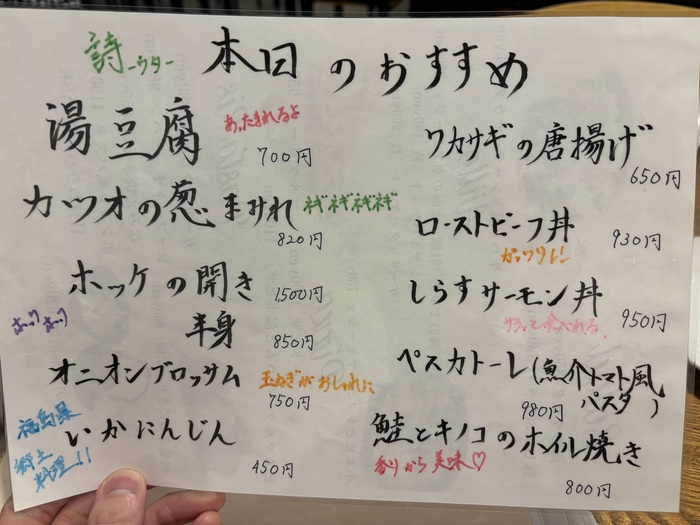 詩ーウター 本日のおすすめ
湯豆腐 あったまれるよ
700円
カツオの葱まみれ ネギネギネギネギ
820円
ホッケの開き 1500円
ホック ホック
半身 850円
オニオンブロッサム 玉ねぎがおしゃれに
750円
福島県
郷土
料理!!
いかにんじん
450円
ワカサギの唐揚げ
650円
ローストビーフ丼 930円
ガッツリ!!
しらすサーモン丼 950円
サラッと食べれる。
ペスカトーレ(魚介トマト風
パスタ)
980円
鮭とキノコのホイル焼き
香りから美味♡
800円